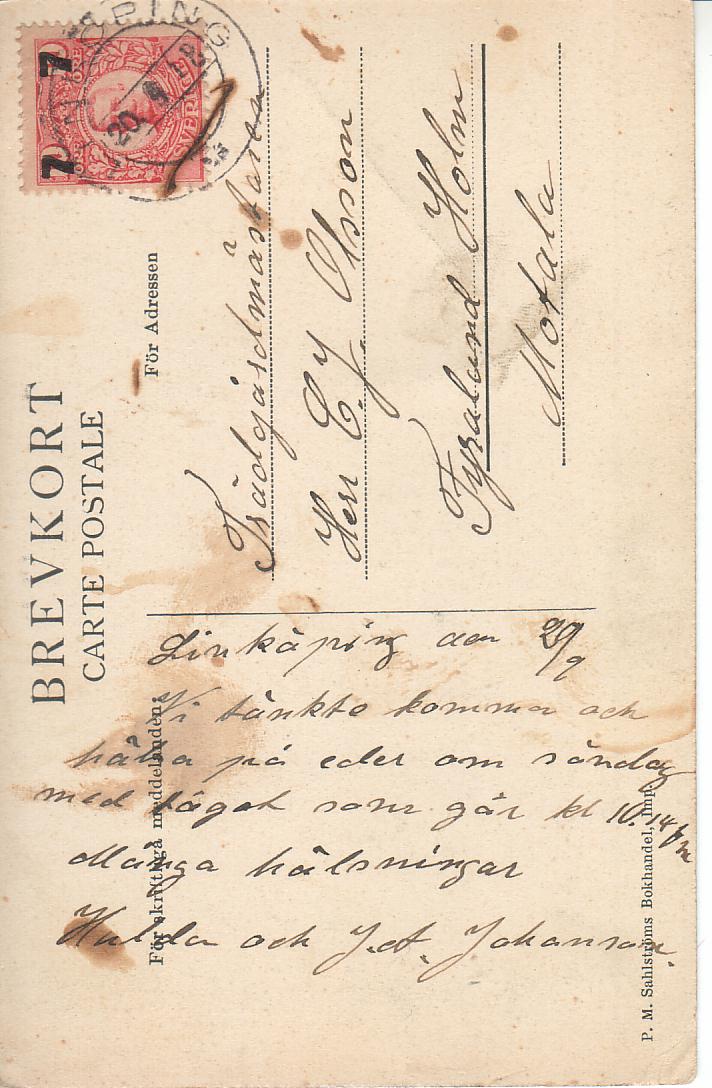 BREVKORT
CARTE POSTALE
För Adressen
7 7
SVERIGE
20 9 18
Trädgårdmästaren
Herr C. J. Olsson
Fyraland Holm
Motala
För skriftliga meddelanden:
Linköping den 20/9
Vi tänkte komma och
hälsa på eder om söndag
med tåget som går kl 10.14 f m
Många hälsningar
Hulda och J. A. Johanson.
P. M. Sahlströms Bokhandel, Imp.